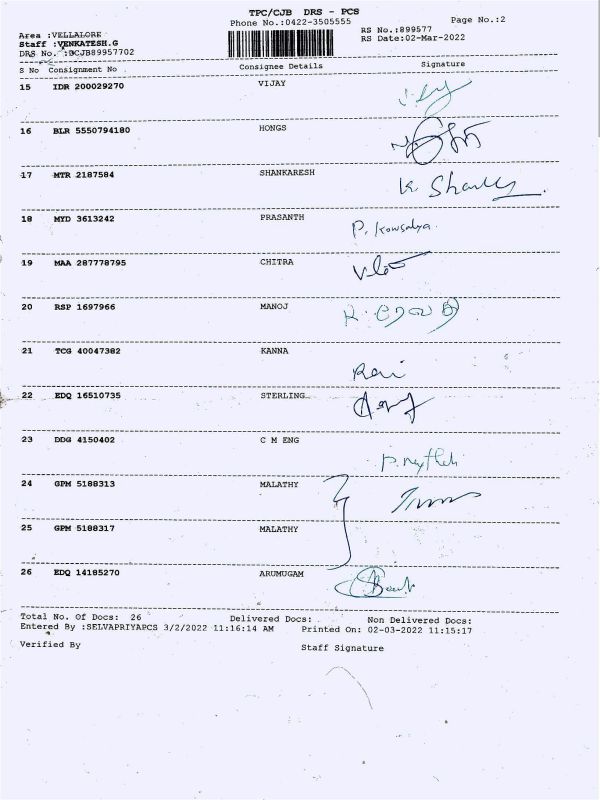 TPC/CJB DRS - PCS
Phone No.:0422-3505555 Page No.:2
Area :VELLALORE RS No.:899577
Staff :VENKATESH.G RS Date:02-Mar-2022
DRS No. :DCJB89957702
S No Consignment No Consignee Details Signature
15 IDR 200029270 VIJAY
16 BLR 5550794180 HONGS
17 MTR 2187584 SHANKARESH
18 MYD 3613242 PRASANTH P. Kowsalya
19 MAA 287778795 CHITRA
20 RSP 1697966 MANOJ
21 TCG 40047382 KANNA
22 EDQ 16510735 STERLING
23 DDG 4150402 C M ENG
24 GPM 5188313 MALATHY
25 GPM 5188317 MALATHY
26 EDQ 14185270 ARUMUGAM
Total No. Of Docs: 26 Delivered Docs: Non Delivered Docs:
Entered By :SELVAPRIYAPCS 3/2/2022 11:16:14 AM Printed On: 02-03-2022 11:15:17
Verified By Staff Signature